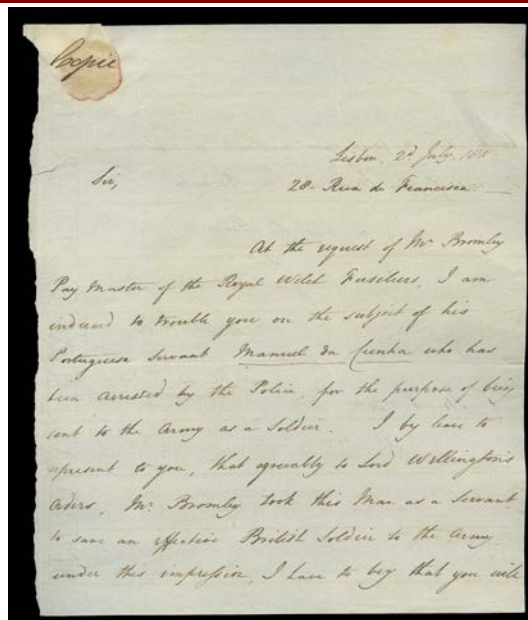 Copie
Lisbon, 2d July, 181
Sir,
28 Rua de Francisca
At the request of Mr Bromley
Pay Master of the Royal Welch Fusiliers, I am
induced to trouble you on the subject of his
Portuguese Servant Manuel da Cunha who has
been arrested by the Police, for the purpose of being
sent to the Army as a Soldier. I beg leave to
represent to you, that agreeably to Lord Wellington's
Orders, Mr. Bromley took this Man as a Servant
to save an effective British Soldier to the Army
under this impression, I have to beg that you will